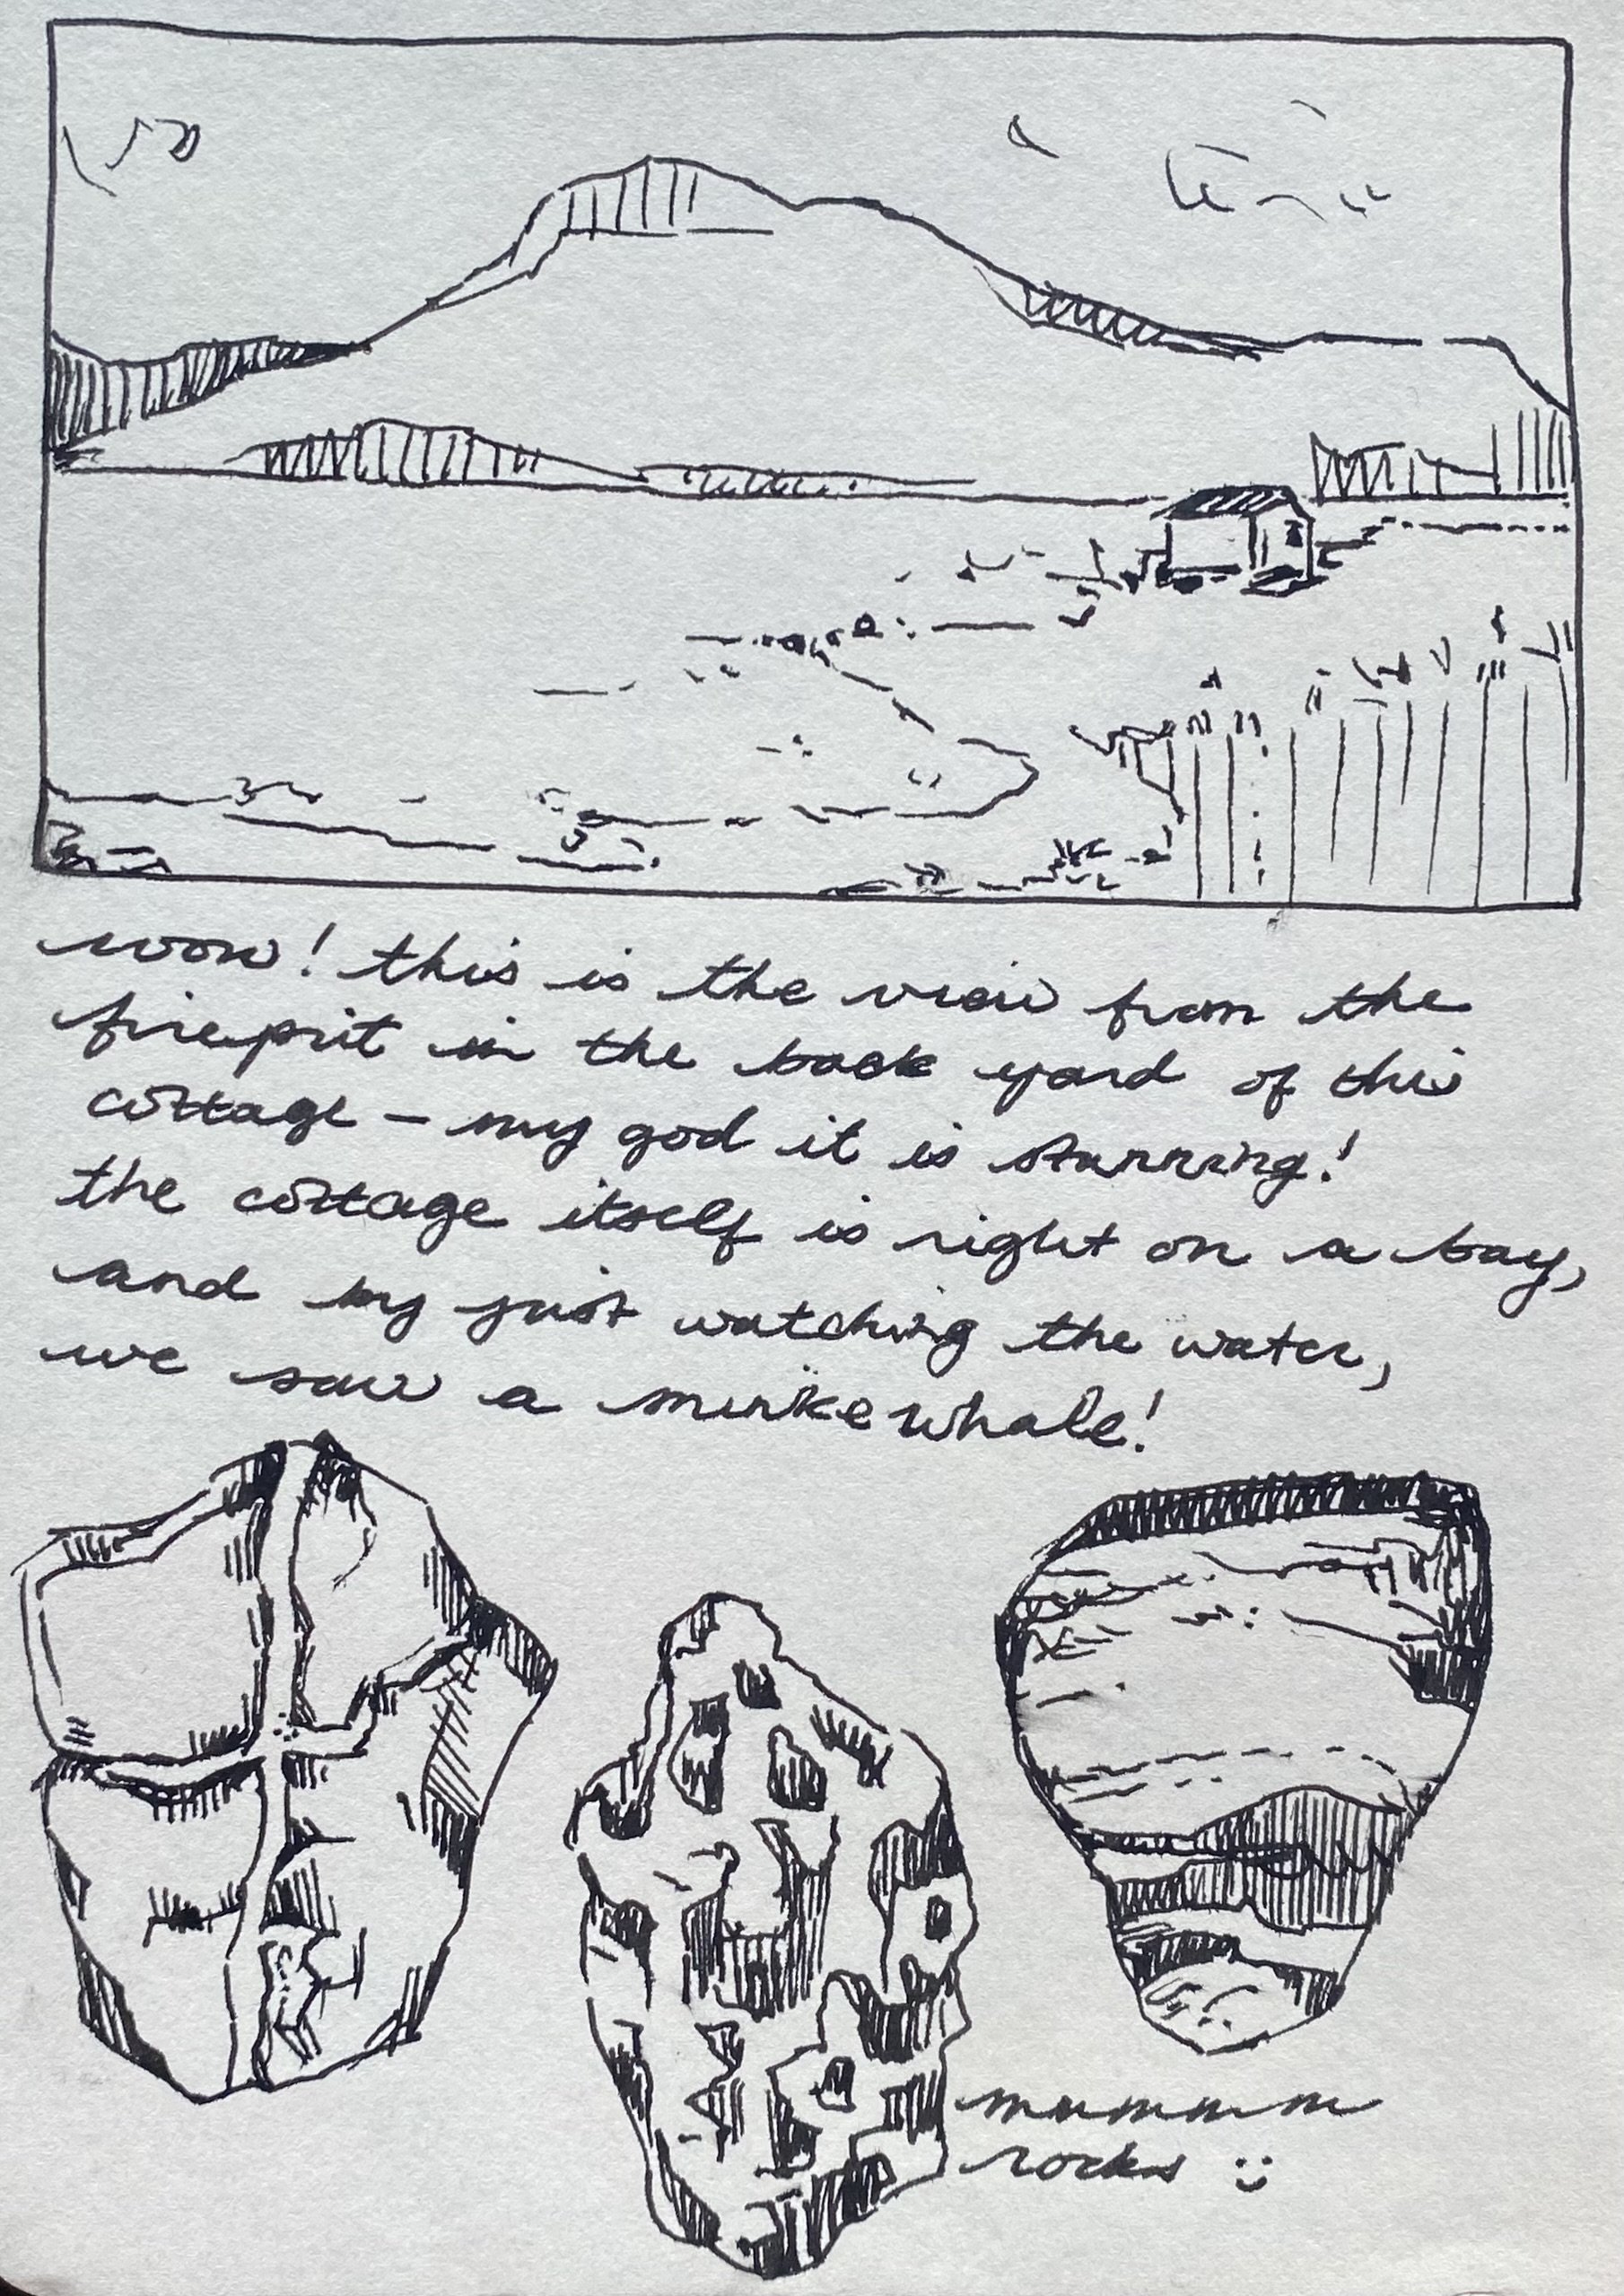 wow! this is the view from the
firepit in the back yard of this
cottage - my god it is stunning!
the cottage itself is right on a bay,
and by just watching the water,
we saw a minke whale!
mmmmm
rocks :)